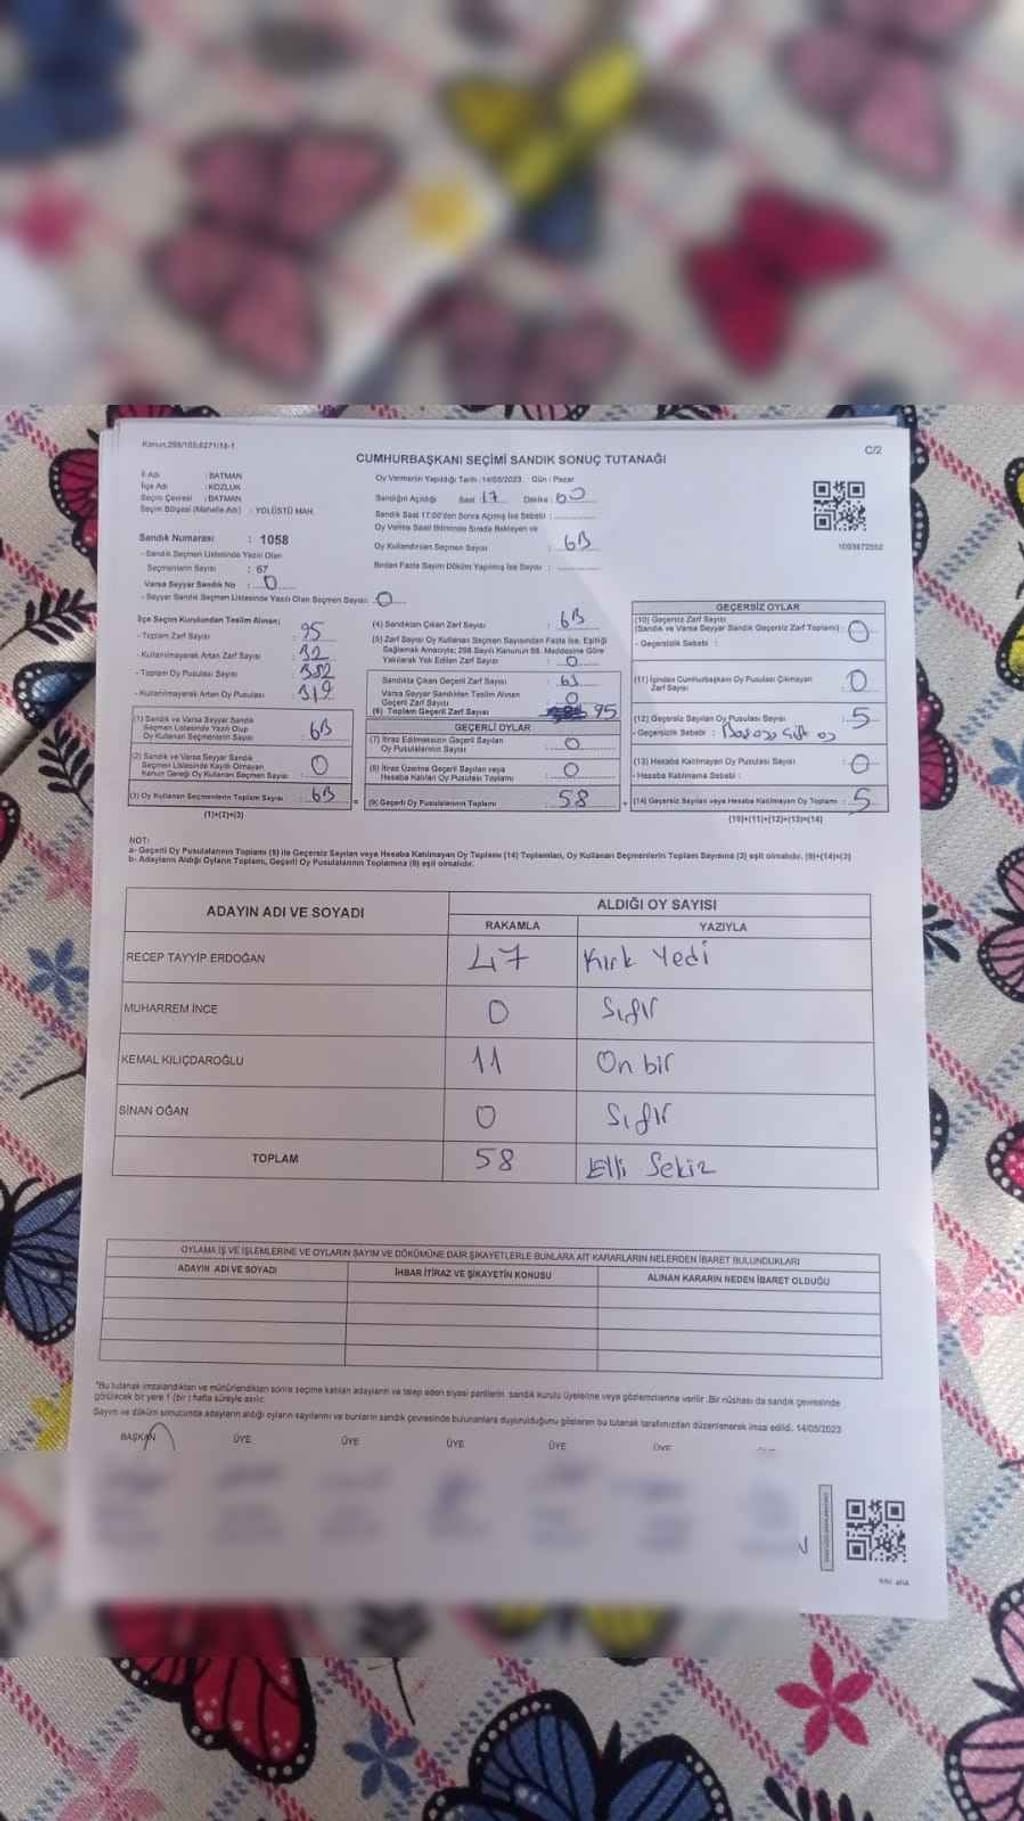 Kanun:298/105;6271/14-1
C/2
CUMHURBAŞKANI SEÇİMİ SANDIK SONUÇ TUTANAĞI
İl Adı : BATMAN
İlçe Adı : KOZLUK
Seçim Çevresi : BATMAN
Seçim Bölgesi (Mahalle Adı) : YOLÜSTÜ MAH.
Oy Vermenin Yapıldığı Tarih : 14/05/2023 Gün : Pazar
Sandığın Açıldığı Saat 17 Dakika
Sandık Saat 17:00'den Sonra Açılmış İse Sebebi :
Oy Verme Saati Bitiminde Sırada Bekleyen ve
Oy Kullandırılan Seçmen Sayısı : 63
Birden Fazla Sayım Döküm Yapılmış İse Sayısı :
Sandık Numarası : 1058
- Sandık Seçmen Listesinde Yazılı Olan
Seçmenlerin Sayısı : 67
Varsa Seyyar Sandık No : 0
- Seyyar Sandık Seçmen Listesinde Yazılı Olan Seçmen Sayısı : 0
İlçe Seçim Kurulundan Teslim Alınan;
- Toplam Zarf Sayısı : 95
- Kullanılmayarak Artan Zarf Sayısı : 32
- Toplam Oy Pusulası Sayısı :
- Kullanılmayarak Artan Oy Pusulası : 319
(1) Sandık ve Varsa Seyyar Sandık
Seçmen Listesinde Yazılı Olup
Oy Kullanan Seçmenlerin Sayısı : 63
(2) Sandık ve Varsa Seyyar Sandık
Seçmen Listesinde Kayıtlı Olmayan
Kanun Gereği Oy Kullanan Seçmen Sayısı : 0
(3) Oy Kullanan Seçmenlerin Toplam Sayısı : 63
(1)+(2)=(3)
(4) Sandıktan Çıkan Zarf Sayısı : 63
(5) Zarf Sayısı Oy Kullanan Seçmen Sayısından Fazla İse, Eşitliği
Sağlamak Amacıyla; 298 Sayılı Kanunun 98. Maddesine Göre
Yakılarak Yok Edilen Zarf Sayısı : 0
Sandıkta Çıkan Geçerli Zarf Sayısı : 63
Varsa Seyyar Sandıktan Teslim Alınan
Geçerli Zarf Sayısı : 0
(6) Toplam Geçerli Zarf Sayısı : 95
GEÇERLİ OYLAR
(7) İtiraz Edilmeksizin Geçerli Sayılan
Oy Pusulalarının Sayısı : 0
(8) İtiraz Üzerine Geçerli Sayılan veya
Hesaba Katılan Oy Pusulası Toplamı : 0
(9) Geçerli Oy Pusulalarının Toplamı : 58
GEÇERSİZ OYLAR
(10) Geçersiz Zarf Sayısı
(Sandık ve Varsa Seyyar Sandık Geçersiz Zarf Toplamı) : 0
- Geçersizlik Sebebi :
(11) İçinden Cumhurbaşkanı Oy Pusulası Çıkmayan
Zarf Sayısı : 0
(12) Geçersiz Sayılan Oy Pusulası Sayısı : 5
- Geçersizlik Sebebi :
(13) Hesaba Katılmayan Oy Pusulası Sayısı : 0
- Hesaba Katılmama Sebebi :
(14) Geçersiz Sayılan veya Hesaba Katılmayan Oy Toplamı : 5
(10)+(11)+(12)+(13)=(14)
NOT:
a- Geçerli Oy Pusulalarının Toplamı (9) ile Geçersiz Sayılan veya Hesaba Katılmayan Oy Toplamı (14) Toplamları, Oy Kullanan Seçmenlerin Toplam Sayısına (3) eşit olmalıdır. (9)+(14)=(3)
b- Adayların Aldığı Oyların Toplamı, Geçerli Oy Pusulalarının Toplamına (9) eşit olmalıdır.
ADAYIN ADI VE SOYADI ALDIĞI OY SAYISI
RAKAMLA YAZIYLA
RECEP TAYYİP ERDOĞAN 47 Kırk Yedi
MUHARREM İNCE 0 Sıfır
KEMAL KILIÇDAROĞLU 11 On bir
SİNAN OĞAN 0 Sıfır
TOPLAM 58 Elli Sekiz
OYLAMA İŞ VE İŞLEMLERİNE VE OYLARIN SAYIM VE DÖKÜMÜNE DAİR ŞİKAYETLERLE BUNLARA AİT KARARLARIN NELERDEN İBARET BULUNDUKLARI
ADAYIN ADI VE SOYADI İHBAR İTİRAZ VE ŞİKAYETİN KONUSU ALINAN KARARIN NEDEN İBARET OLDUĞU
"Bu tutanak imzalandıktan ve mühürlendikten sonra seçime katılan adayların ve talep eden siyasi partilerin sandık kurulu üyelerine veya gözlemcilerine verilir. Bir nüshası da sandık çevresinde
görülecek bir yere 1 (bir) hafta süreyle asılır.
Sayım ve döküm sonucunda adayların aldığı oyların sayılarını ve bunların sandık çevresinde bulunanlara duyurulduğunu gösteren bu tutanak tarafımızdan düzenlenerek imza edildi. 14/05/2023
BAŞKAN ÜYE ÜYE ÜYE ÜYE ÜYE